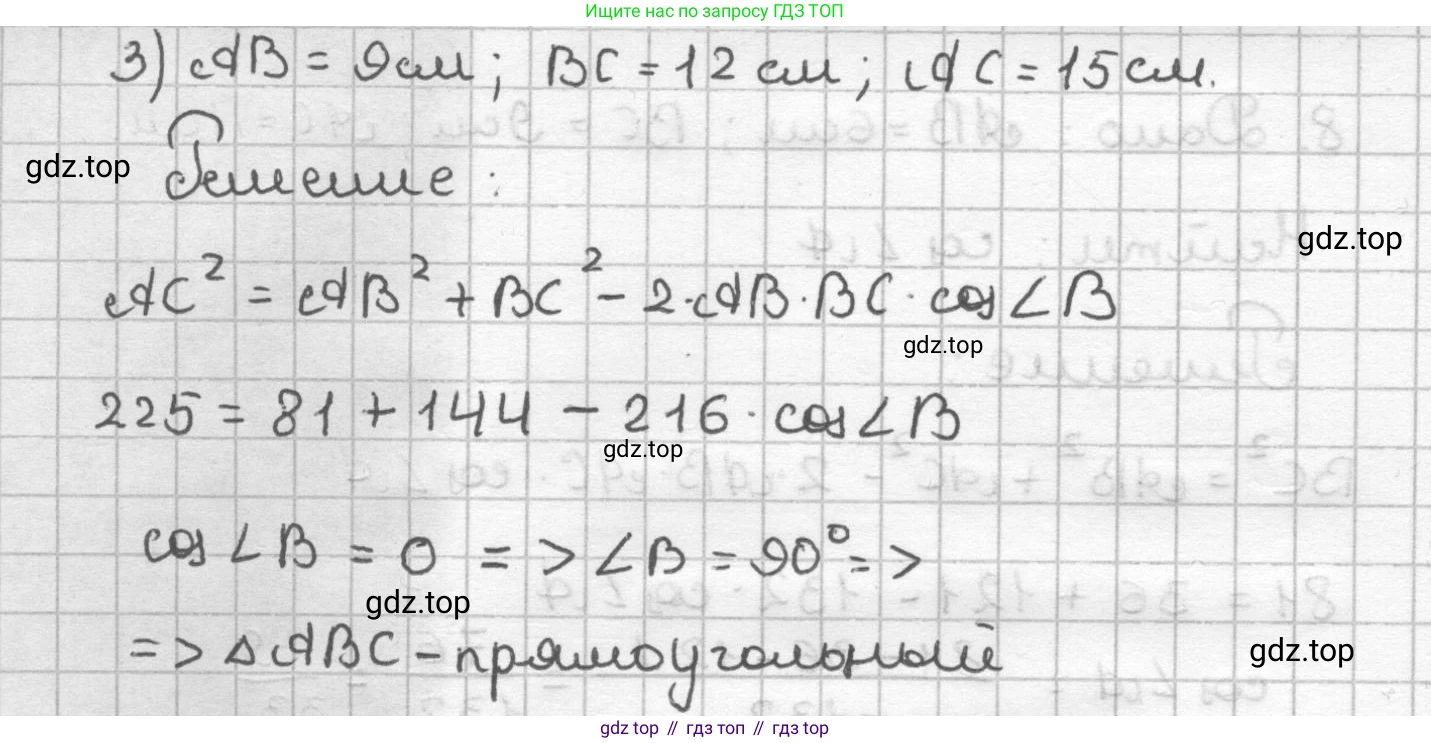 Ищите нас по запросу ГДЗ ТОП
3) AB = 9см; BC = 12 см; AC = 15 см.
gdz.top
Решение:
gdz.top
AC² = AB² + BC² - 2·AB·BC·cos∠B
gdz.top
225 = 81 + 144 - 216·cos∠B
gdz.top
cos∠B = 0 => ∠B = 90° =>
gdz.top
=> △ABC - прямоугольный
gdz.top
gdz top // гдз топ // гдз top